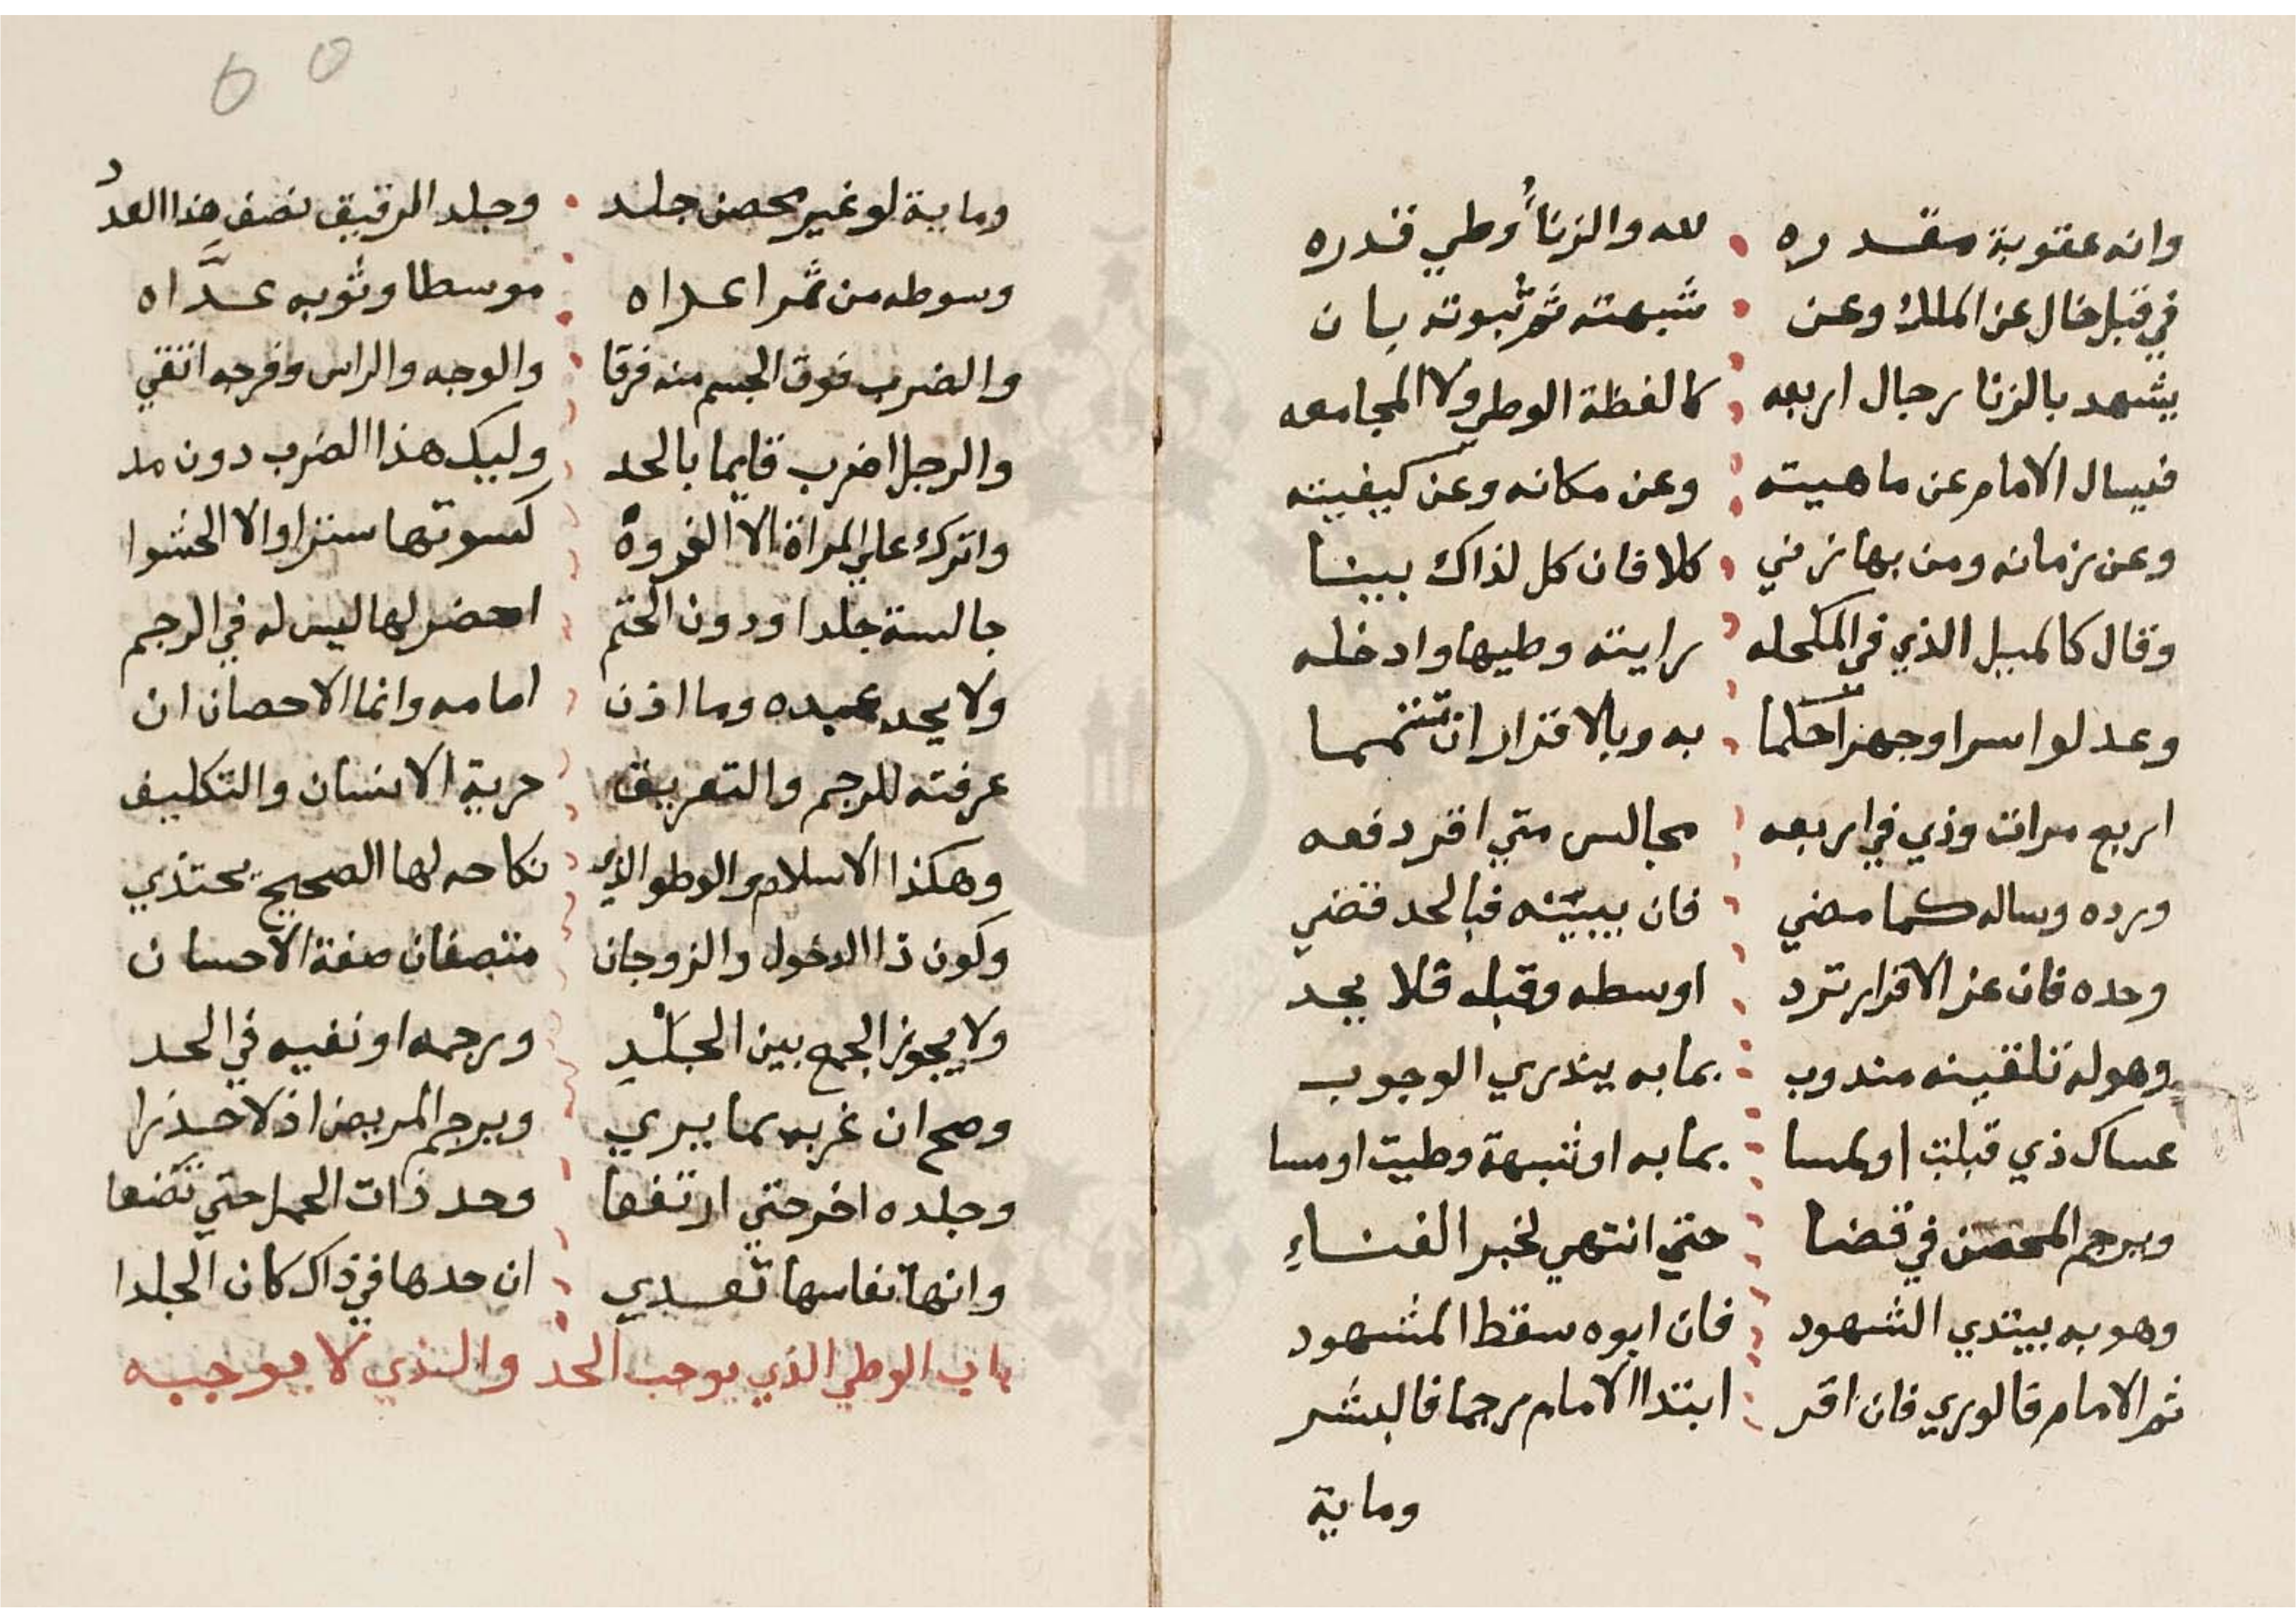 وانه عقوبة مقدره لله والزناُ وطي قدره
في قبل خال عن الملك وعن شبهته ثم ثبوته بان
يشهد بالزنا رجال اربعه كالفظة الوطي ولا المجامعه
فيسال الامام عن ماهيته وعن مكانه وعن كيفيته
وعن زمانه ومن بها زني كلا فان كل لذاك بينا
وقال كالميل الذي في المكحله رايته وطيها وادخله
وعدلوا سرا وجهرا حكما به وبالاقرار ان تتمما
اربع مرات وذي في اربعه مجالس متي اقر دفعه
ورده وساله كما مضي فان يبينه فبالحد قضي
وحده فان عن الاقرار ترد اوسطه وقبله فلا يحد
وهو له تلقينه مندوب بما به يندري الوجوب
عساك ذي قبلت او لمسا بما به او شبهة وطيت او مسا
ويرجم المحصن في قضا حتي انتهي لخبر الفناءِ
وهو به يبتدي الشهود فان ابوه سقط المشهود
ثم الامام فالوري فان اقر ابتدا الامام رجما فالبشر
وماية
وماية لو غير محصن جلد وجلد الرقيق نصف هذا العدد
وسوطه من ثمر اعراه موسطا وثوبه عدَّاه
والضرب فوق الجسم منه فرقا والوجه والراس وفرجه اتقي
والرجل اضرب قايما بالحد وليك هذا الضرب دون مد
واترك علي المراة الا الفروة كسوتها سترا والا الحشوا
جالسة جلدا ودون الحتم احضر لها ليس له في الرجم
ولا يحد عبده وما اذن امامه وانما الاحصان ان
عرفته للرجم والتعريف حرية الانسان والتكليف
وهكذا الاسلام والوطو الذي نكاحه لها الصحيح يحتذي
وكون ذا الدخول والزوجان متصفان صفة الاحسان
ولا يجوز الجمع بين الجلْدِ ورجمه او نفيه في الحد
وصح ان غربه بما يري ويرجم المريض اذ لا حذرا
وجلده اخر حتي ارتفعا وحد ذات الحمل حتي تضعا
وانها نفاسها تعدي ان حدها في ذاك كان الجلدا
باب الوطي الذي يوجب الحد والذي لا يوجبه